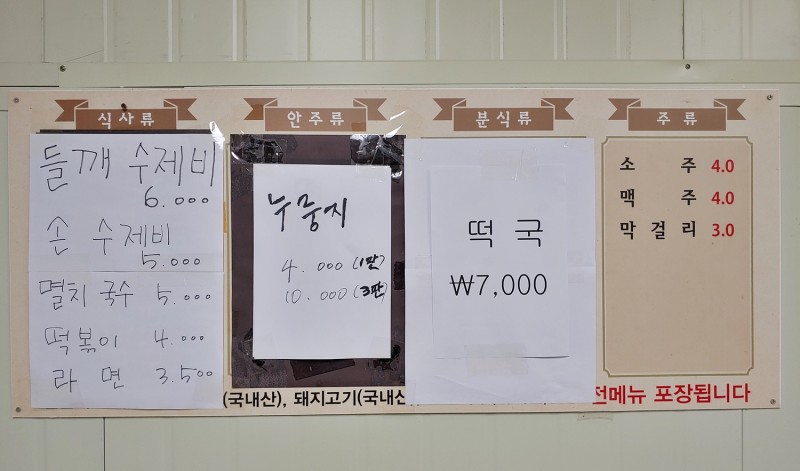 식사류
들깨 수제비
6.000
손 수제비
5.000
멸치 국수 5.000
떡볶이 4.000
라면 3.500
안주류
누룽지
4.000 (1판)
10.000 (3판)
(국내산), 돼지고기(국내산
분식류
떡국
₩7,000
주류
소주 4.0
맥주 4.0
막걸리 3.0
전메뉴 포장됩니다